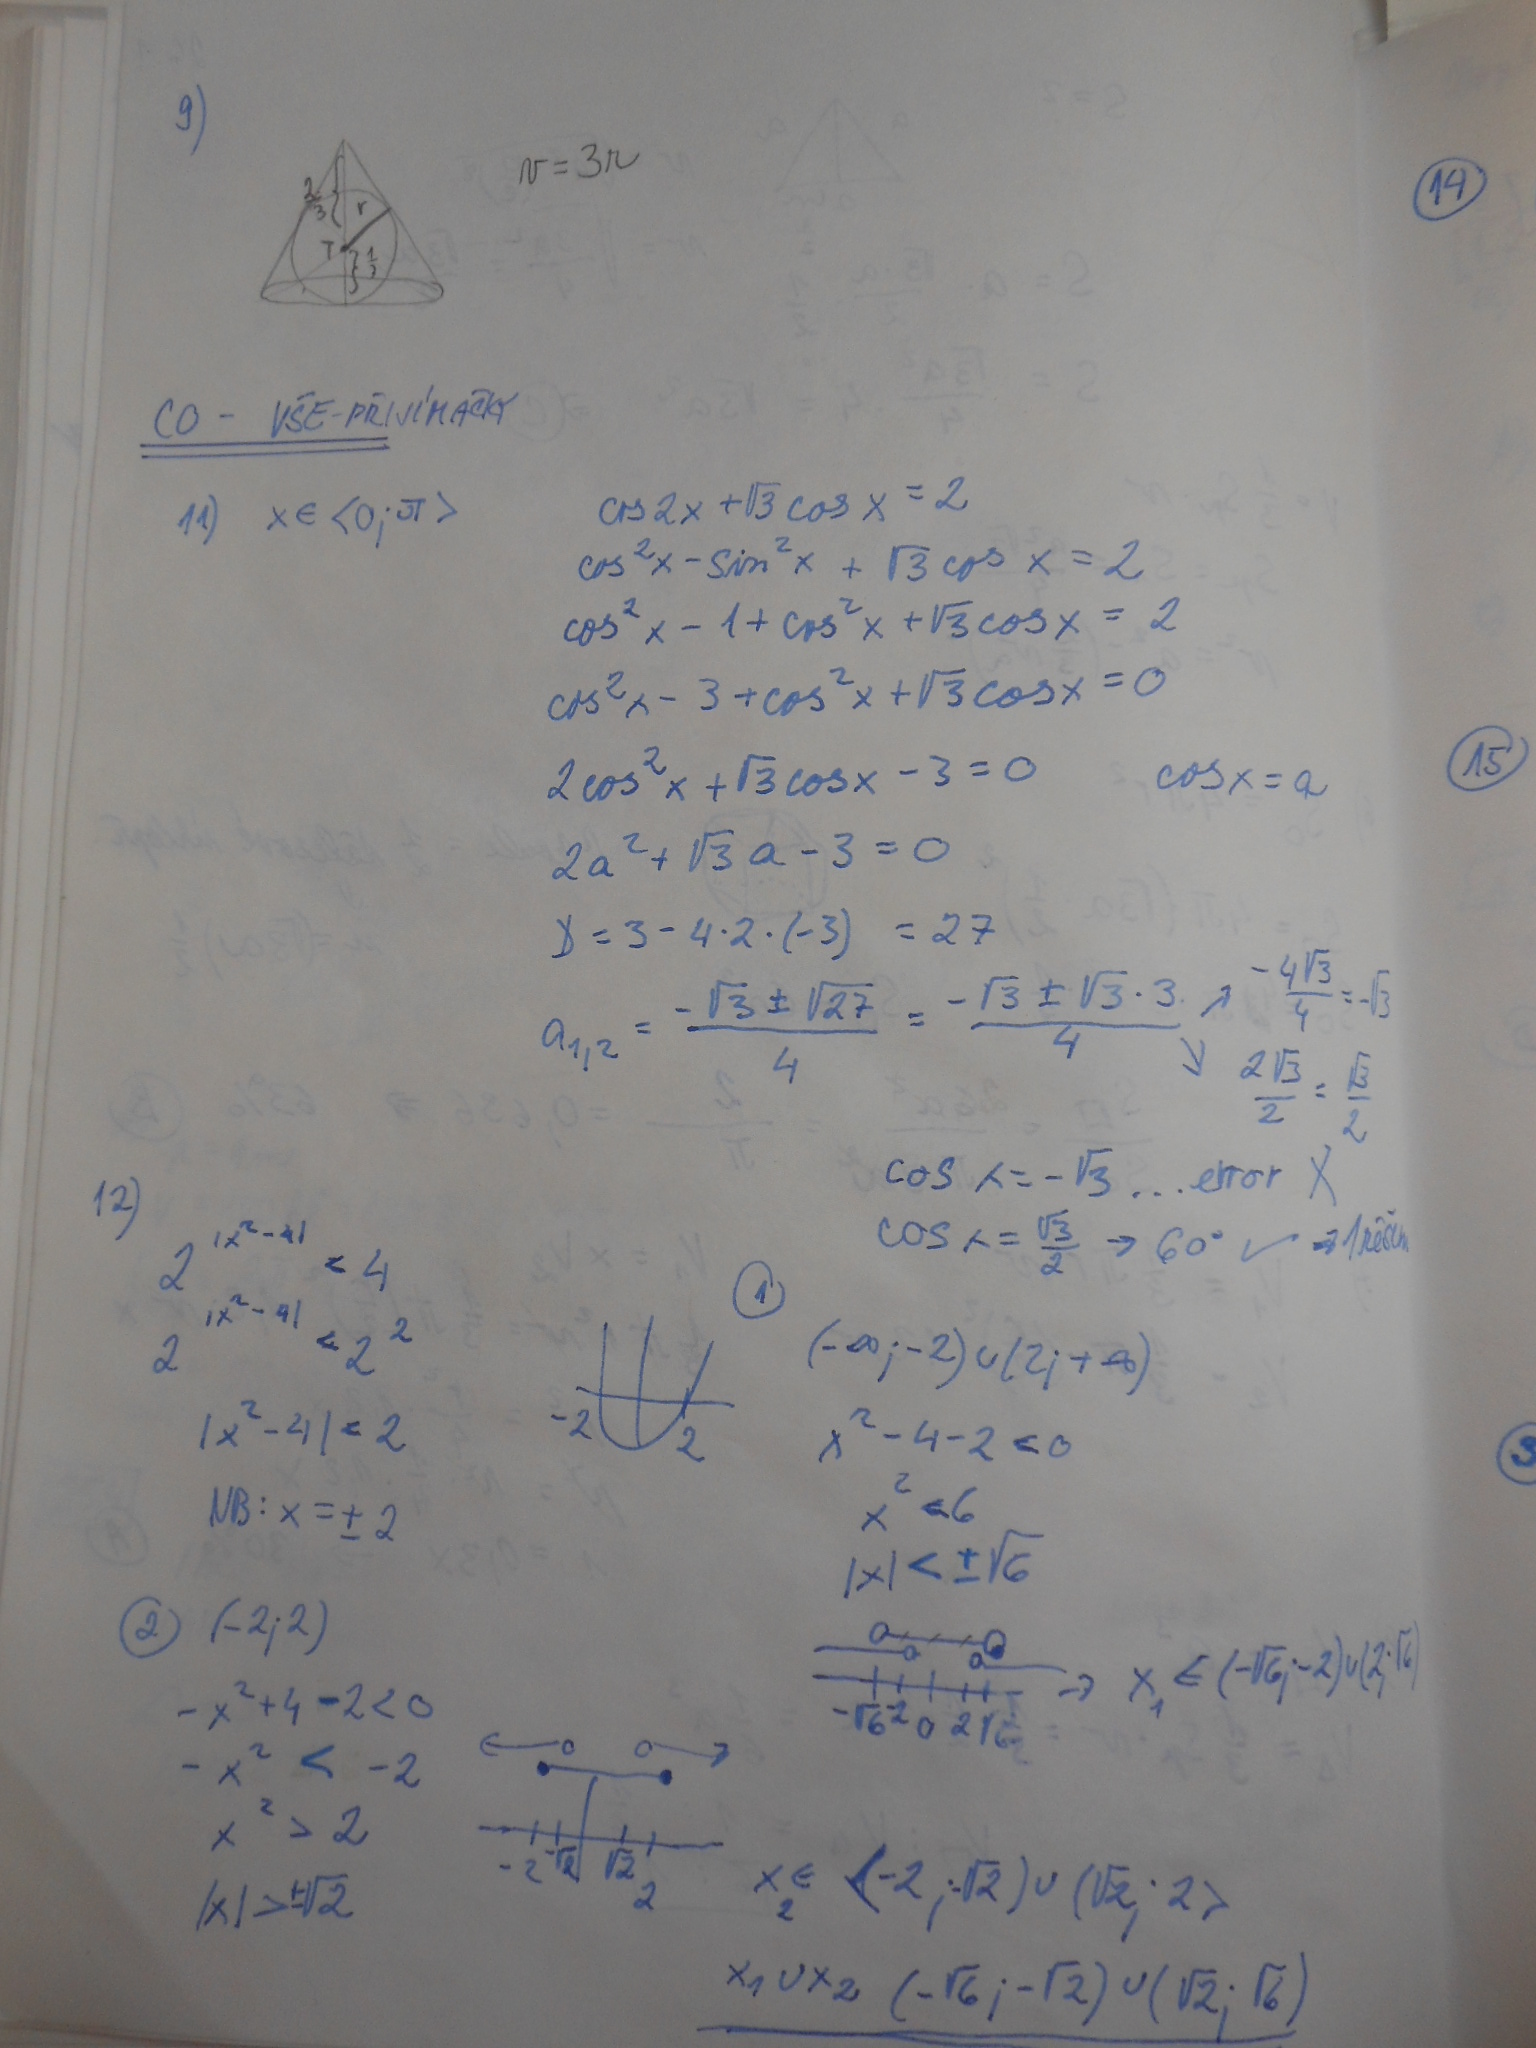 9)
v = 3r
2/3
r
T
1/3
CO - VŠE-PŘIJÍMAČKY
11) x ∈ <0; π>
cos2x + √3 cos x = 2
cos²x - sin²x + √3 cos x = 2
cos²x - 1 + cos²x + √3 cosx = 2
cos²x - 3 + cos²x + √3 cosx = 0
2cos²x + √3 cosx - 3 = 0 cosx = a
2a² + √3 a - 3 = 0
D = 3 - 4·2·(-3) = 27
a1,2 = (-√3 ± √27)/4 = (-√3 ± √3·3)/4 ↗ -4√3/4 = -√3
↘ 2√3/2 = √3/2
cos x = -√3 ... error X
cos x = √3/2 → 60° ✓ → 1 řešení
12)
2^|x²-4| < 4
2^|x²-4| < 2²
|x²-4| < 2
NB: x = ± 2
-2 2
①
(-∞; -2) ∪ (2; +∞)
x² - 4 - 2 < 0
x² < 6
|x| < ±√6
-√6 -2 0 2 √6
→ x1 ∈ (-√6; -2) ∪ (2; √6)
② (-2; 2)
-x² + 4 - 2 < 0
-x² < -2
x² > 2
|x| > ±√2
-2 -√2 √2 2
x2 ∈ <-2; -√2) ∪ (√2; 2>
x1 ∪ x2 (-√6; -√2) ∪ (√2; √6)
14
15
3